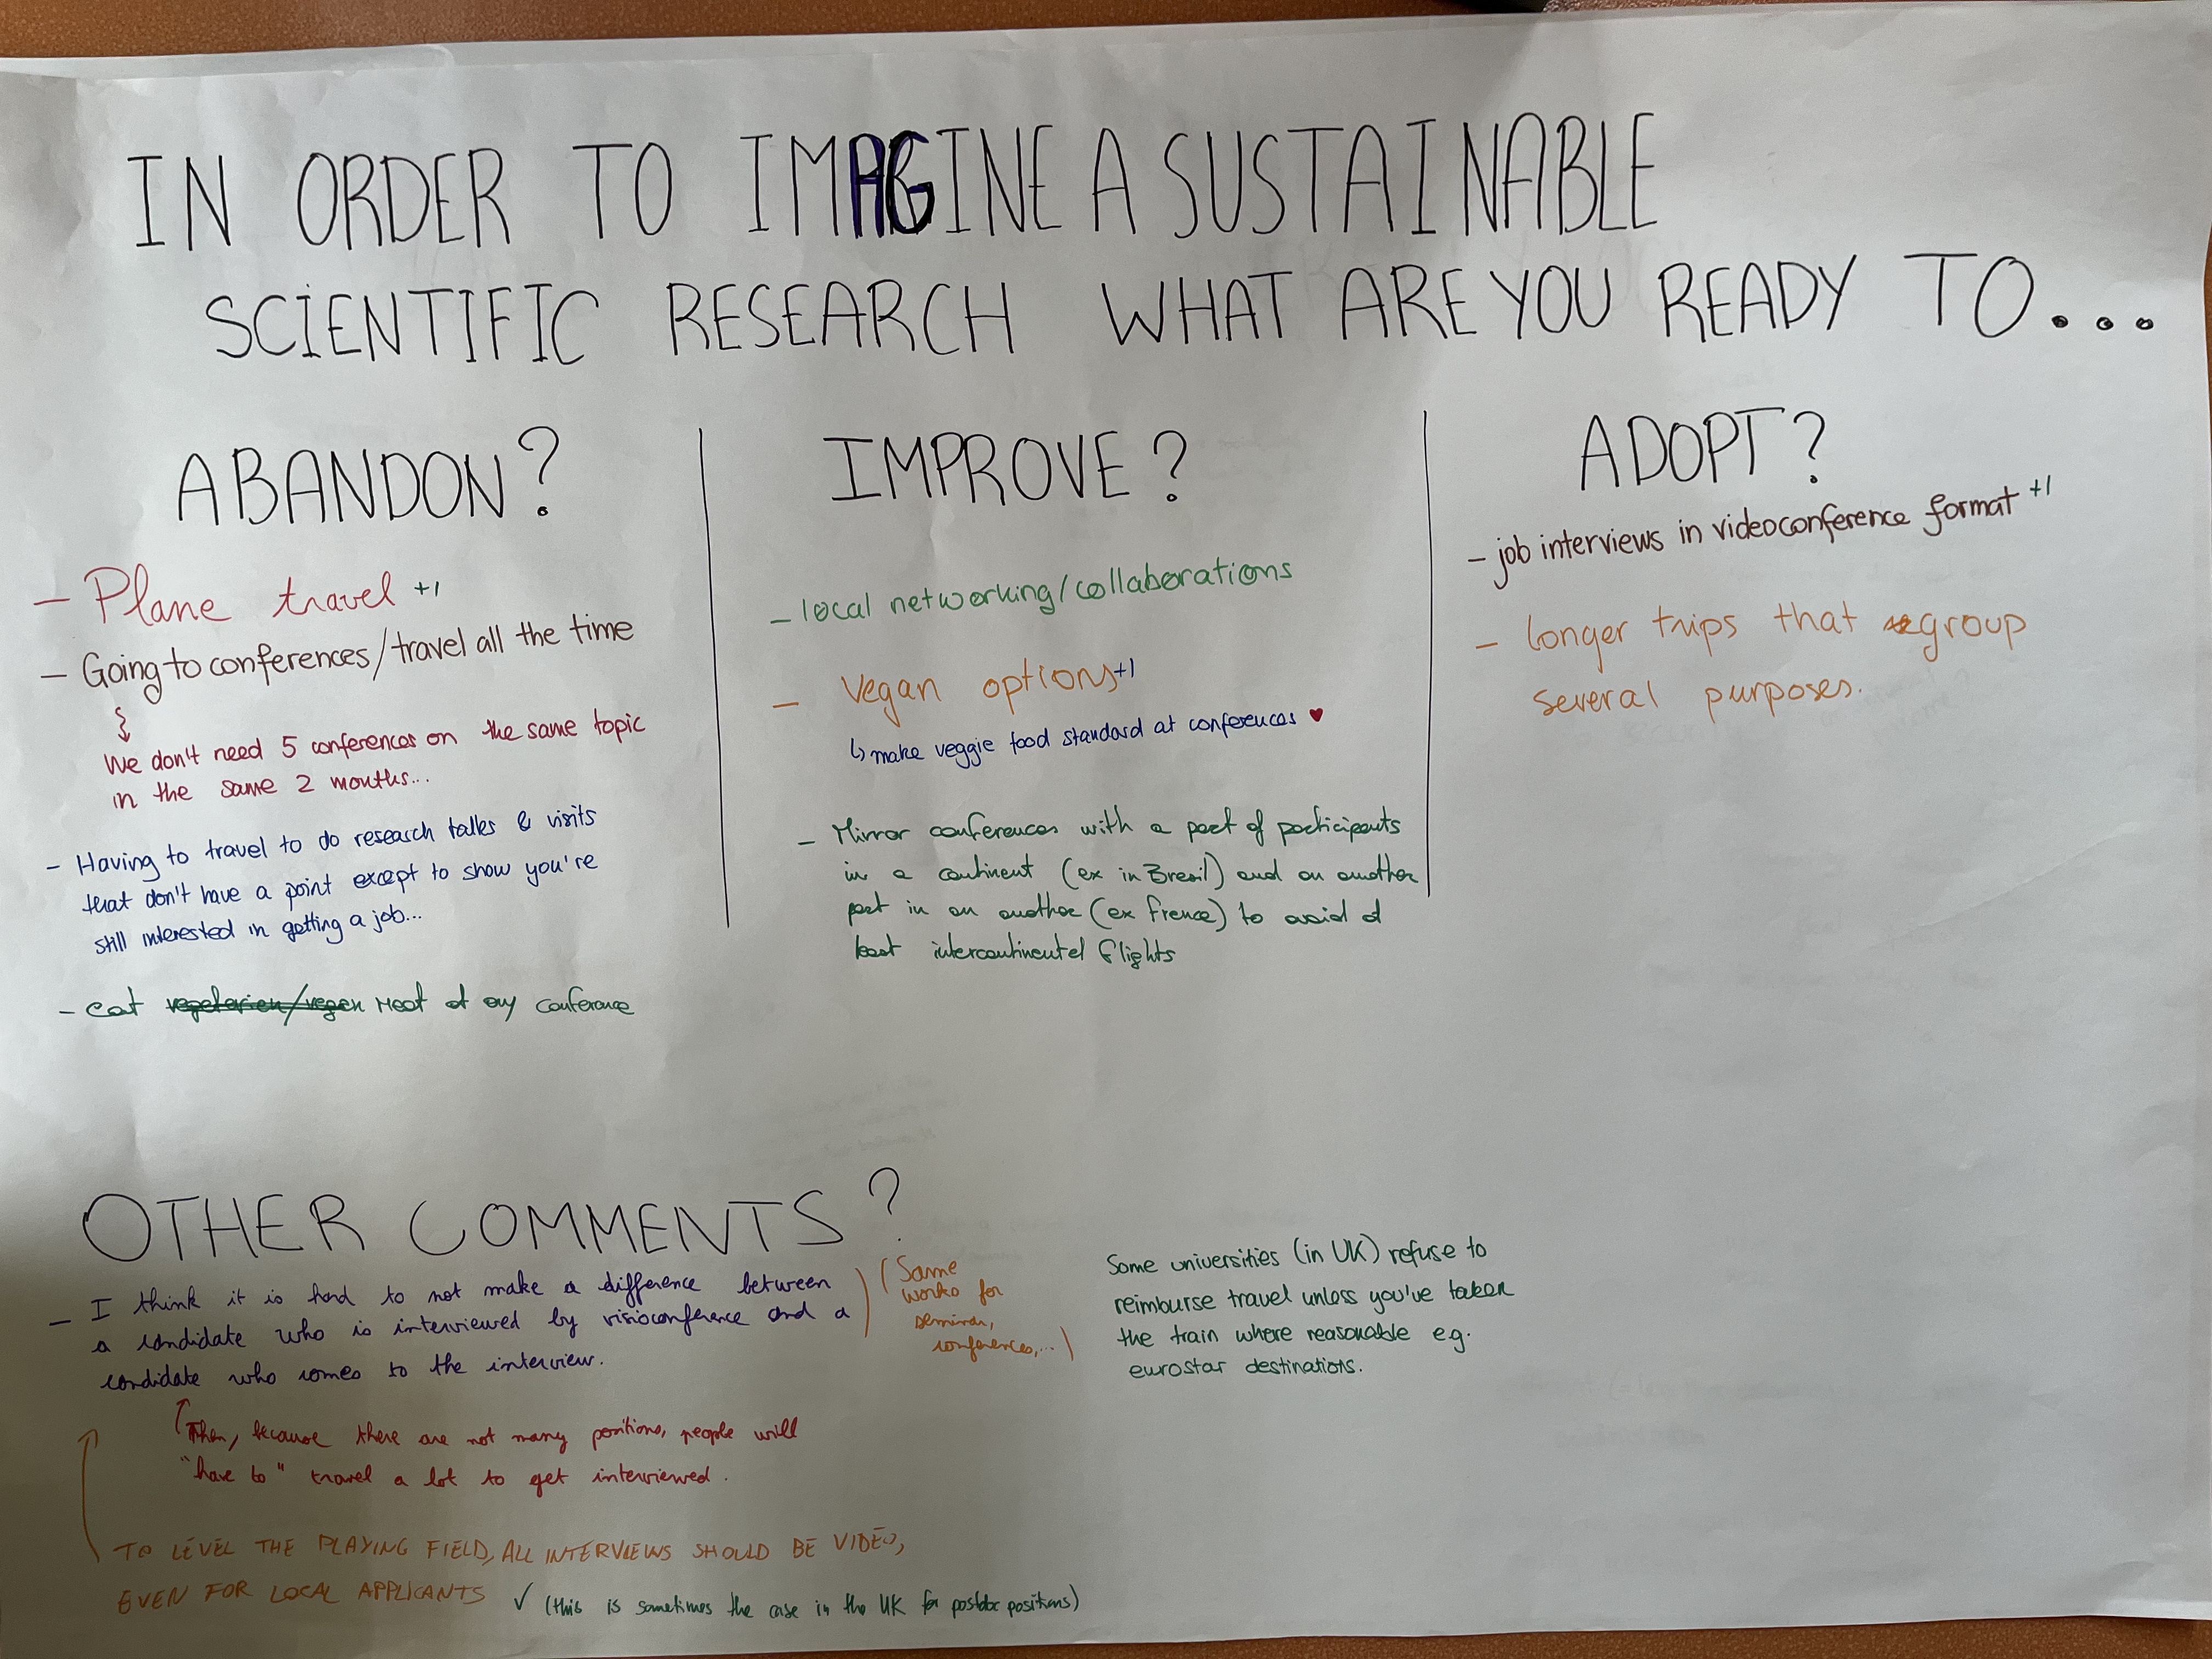 IN ORDER TO IMAGINE A SUSTAINABLE
SCIENTIFIC RESEARCH WHAT ARE YOU READY TO...
ABANDON?
- Plane travel +1
- Going to conferences/travel all the time
We don't need 5 conferences on the same topic
in the same 2 months...
- Having to travel to do research talks & visits
that don't have a point except to show you're
still interested in getting a job...
- eat vegetarian/vegan meat at any conference
IMPROVE?
- local networking/collaborations
- Vegan options +1
↳ make veggie food standard at conferences ♥
- Mirror conferences with a part of participants
in a continent (ex in Bresil) and on another
part in an another (ex France) to avoid at
least intercontinental flights
ADOPT?
- job interviews in videoconference format +1
- longer trips that regroup
several purposes.
OTHER COMMENTS?
- I think it is hard to not make a difference between
a candidate who is interviewed by visioconference and a
candidate who comes to the interview.
(Same
works for
seminar,
conferences,...)
Then, because there are not many positions, people will
"have to" travel a lot to get interviewed.
TO LEVEL THE PLAYING FIELD, ALL INTERVIEWS SHOULD BE VIDEO,
EVEN FOR LOCAL APPLICANTS ✓ (this is sometimes the case in the UK for postdoc positions)
Some universities (in UK) refuse to
reimburse travel unless you've taken
the train where reasonable eg.
eurostar destinations.